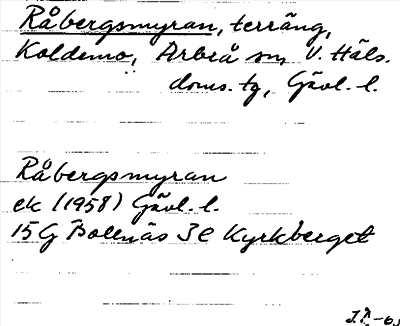 Råbergsmyran, terräng,
Koldemo, Arbrå sn, V. Häls.
doms. tg, Gävl. l.
Råbergsmyran
ek (1958) Gävl. l.
15G Bollnäs 3e Kyrkberget